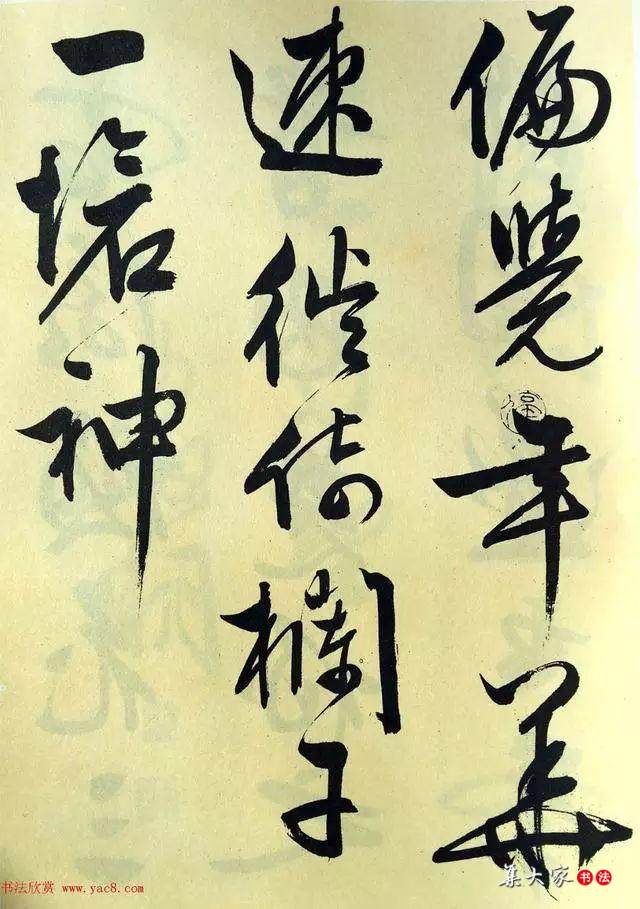 偏覺年華
速徙倚欄干
一愴神
书法欣赏 www.yac8.com
集大家 书法